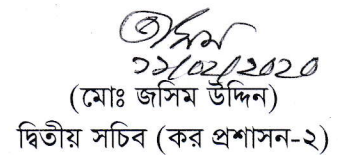 জসিম
১১/০২/২০২০
(মোঃ জসিম উদ্দিন)
দ্বিতীয় সচিব (কর প্রশাসন-২)